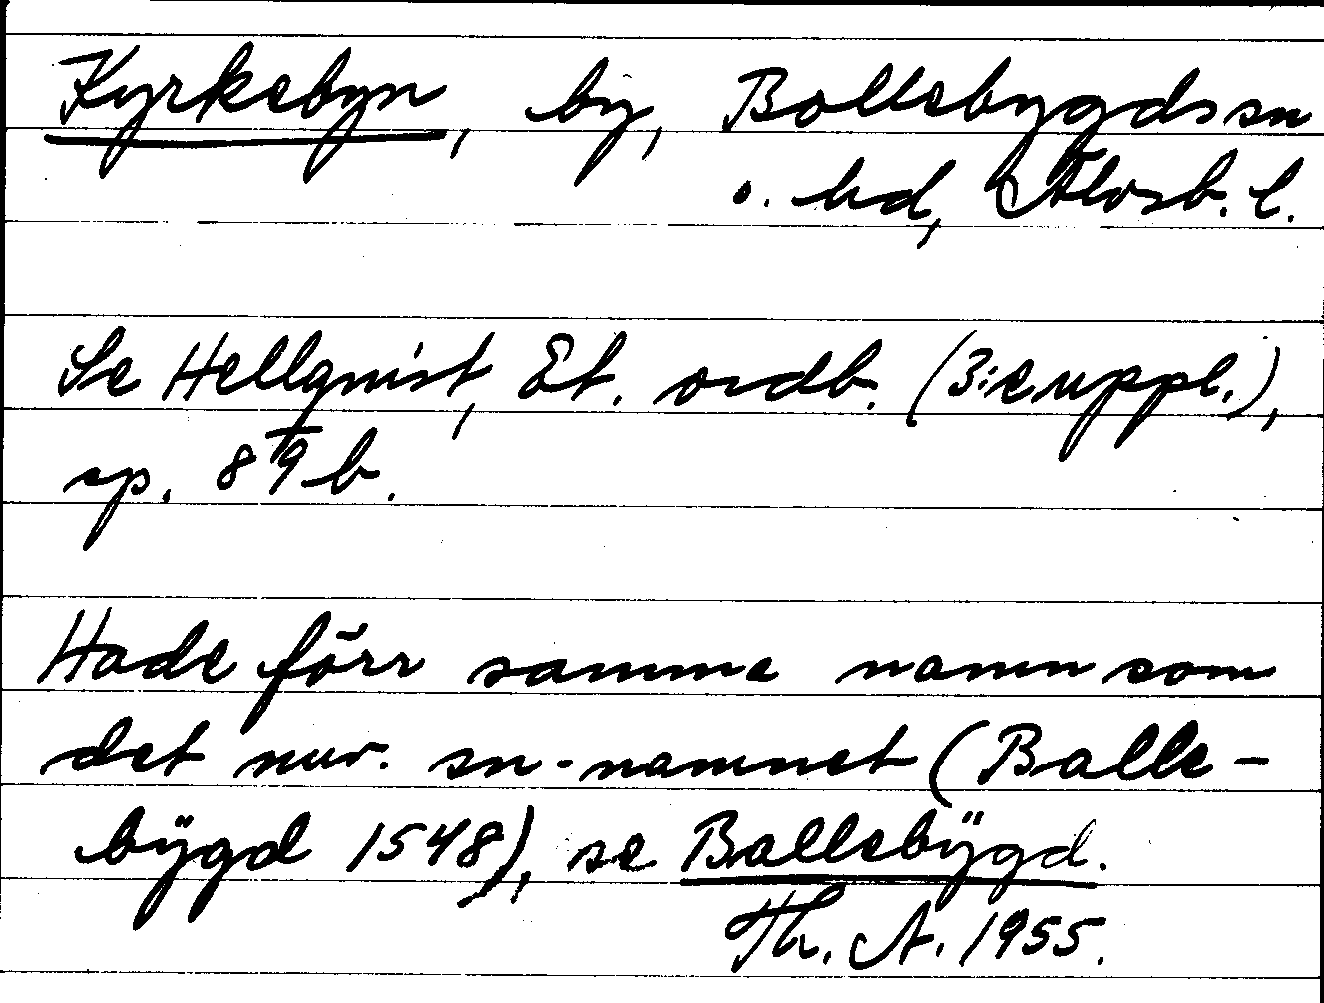 Kyrkebyn, by, Bollebygds sn
o. hd, Älvsb. l.
Se Hellqvist, Et. ordb. (3:e uppl.),
sp. 89 b.
Hade förr samma namn som
det nuv. sn-namnet (Balle-
bÿgd 1548), se Ballebÿgd.
Th. A. 1955.